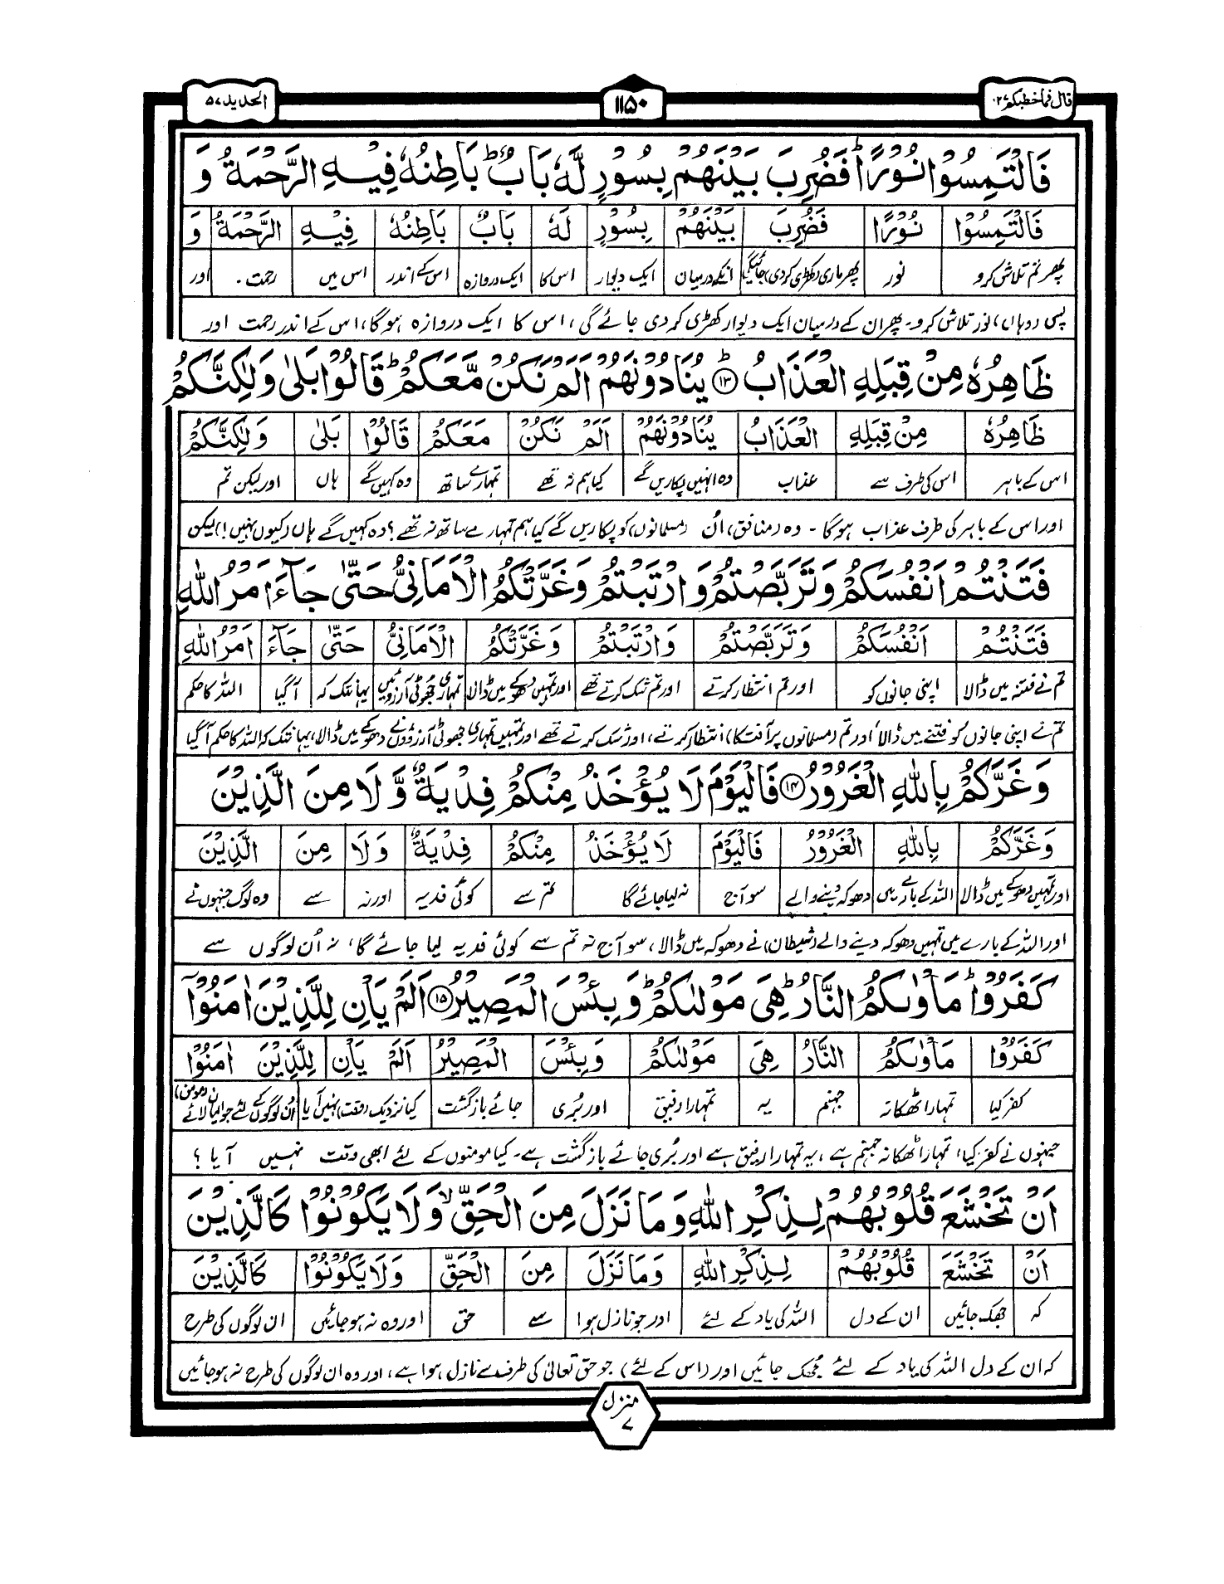 قال فما خطبکم ۲۷
۱۱۵۰
الحدید ۵۷
فَالْتَمِسُوْا نُوْرًا ؕ فَضُرِبَ بَیْنَهُمْ بِسُوْرٍ لَّهٗ بَابٌ ؕ بَاطِنُهٗ فِیْهِ الرَّحْمَةُ وَ
فَالْتَمِسُوْا نُوْرًا فَضُرِبَ بَیْنَهُمْ بِسُوْرٍ لَهٗ بَابٌ بَاطِنُهٗ فِیْهِ الرَّحْمَةُ وَ
پھر تم تلاش کرو نور پھر ماری (کھڑی کر دی) جائیگی انکے درمیان ایک دیوار اس کا ایک دروازہ اس کے اندر اس میں رحمت۔ اور
پس (وہاں) نور تلاش کرو۔ پھر ان کے درمیان ایک دیوار کھڑی کر دی جائے گی، اس کا ایک دروازہ ہوگا، اس کے اندر رحمت اور
ظَاهِرُهٗ مِنْ قِبَلِهِ الْعَذَابُ ؕ۱۳ یُنَادُوْنَهُمْ اَلَمْ نَكُنْ مَّعَكُمْ ؕ قَالُوْا بَلٰی وَلٰكِنَّكُمْ
ظَاهِرُهٗ مِنْ قِبَلِهِ الْعَذَابُ یُنَادُوْنَهُمْ اَلَمْ نَكُنْ مَعَكُمْ قَالُوْا بَلٰی وَلٰكِنَّكُمْ
اس کے باہر اس کی طرف سے عذاب وہ انہیں پکاریں گے کیا ہم نہ تھے تمہارے ساتھ وہ کہیں گے ہاں اور لیکن تم
اور اس کے باہر کی طرف عذاب ہوگا۔ وہ (منافق) اُن (مسلمانوں) کو پکاریں گے کیا ہم تمہارے ساتھ نہ تھے؟ وہ کہیں گے ہاں (کیوں نہیں!) لیکن
فَتَنْتُمْ اَنْفُسَكُمْ وَتَرَبَّصْتُمْ وَارْتَبْتُمْ وَغَرَّتْكُمُ الْاَمَانِیُّ حَتّٰی جَآءَ اَمْرُ اللّٰهِ
فَتَنْتُمْ اَنْفُسَكُمْ وَتَرَبَّصْتُمْ وَارْتَبْتُمْ وَغَرَّتْكُمُ الْاَمَانِیُّ حَتّٰی جَآءَ اَمْرُ اللّٰهِ
تم نے فتنہ میں ڈالا اپنی جانوں کو اور تم انتظار کرتے اور تم شک کرتے تھے اور تمہیں دھوکے میں ڈالا تمہاری جھوٹی آرزوئیں یہانتک کہ آگیا اللہ کا حکم
تم نے اپنی جانوں کو فتنے میں ڈالا اور تم (مسلمانوں پر آفت کا) انتظار کرتے، اور شک کرتے تھے اور تمہیں تمہاری جھوٹی آرزؤوں نے دھوکے میں ڈالا، یہانتک کہ اللہ کا حکم آگیا
وَغَرَّكُمْ بِاللّٰهِ الْغَرُوْرُ ۱۴ فَالْیَوْمَ لَا یُؤْخَذُ مِنْكُمْ فِدْیَةٌ وَّلَا مِنَ الَّذِیْنَ
وَغَرَّكُمْ بِاللّٰهِ الْغَرُوْرُ فَالْیَوْمَ لَا یُؤْخَذُ مِنْكُمْ فِدْیَةٌ وَلَا مِنَ الَّذِیْنَ
اور تمہیں دھوکے میں ڈالا اللہ کے بارے میں دھوکہ دینے والے سو آج نہ لیا جائے گا تم سے کوئی فدیہ اور نہ سے وہ لوگ جنہوں نے
اور اللہ کے بارے میں تمہیں دھوکہ دینے والے (شیطان) نے دھوکہ میں ڈالا، سو آج نہ تم سے کوئی فدیہ لیا جائے گا، نہ اُن لوگوں سے
كَفَرُوْا ؕ مَاْوٰىكُمُ النَّارُ ؕ هِیَ مَوْلٰىكُمْ ؕ وَبِئْسَ الْمَصِیْرُ ۱۵ اَلَمْ یَاْنِ لِلَّذِیْنَ اٰمَنُوْٓا
كَفَرُوْا مَاْوٰىكُمُ النَّارُ هِیَ مَوْلٰىكُمْ وَبِئْسَ الْمَصِیْرُ اَلَمْ یَاْنِ لِلَّذِیْنَ اٰمَنُوْٓا
کفر کیا تمہارا ٹھکانہ جہنم یہ تمہارا رفیق اور بُری جائے بازگشت کیا نزدیک (وقت) نہیں آیا اُن لوگوں کے لئے جو ایمان لائے (مومن)
جنہوں نے کفر کیا، تمہارا ٹھکانہ جہنم ہے، یہ تمہارا رفیق ہے اور بُری جائے بازگشت ہے۔ کیا مومنوں کے لئے ابھی وقت نہیں آیا؟
اَنْ تَخْشَعَ قُلُوْبُهُمْ لِذِكْرِ اللّٰهِ وَمَا نَزَلَ مِنَ الْحَقِّ ۙ وَلَا یَكُوْنُوْا كَالَّذِیْنَ
اَنْ تَخْشَعَ قُلُوْبُهُمْ لِذِكْرِ اللّٰهِ وَمَا نَزَلَ مِنَ الْحَقِّ وَلَا یَكُوْنُوْا كَالَّذِیْنَ
کہ جھک جائیں ان کے دل اللہ کی یاد کے لئے اور جو نازل ہوا سے حق اور وہ نہ ہو جائیں ان لوگوں کی طرح
کہ ان کے دل اللہ کی یاد کے لئے جھک جائیں اور (اس کے لئے) جو حق تعالیٰ کی طرف سے نازل ہوا ہے، اور وہ ان لوگوں کی طرح نہ ہو جائیں
منزل
۷